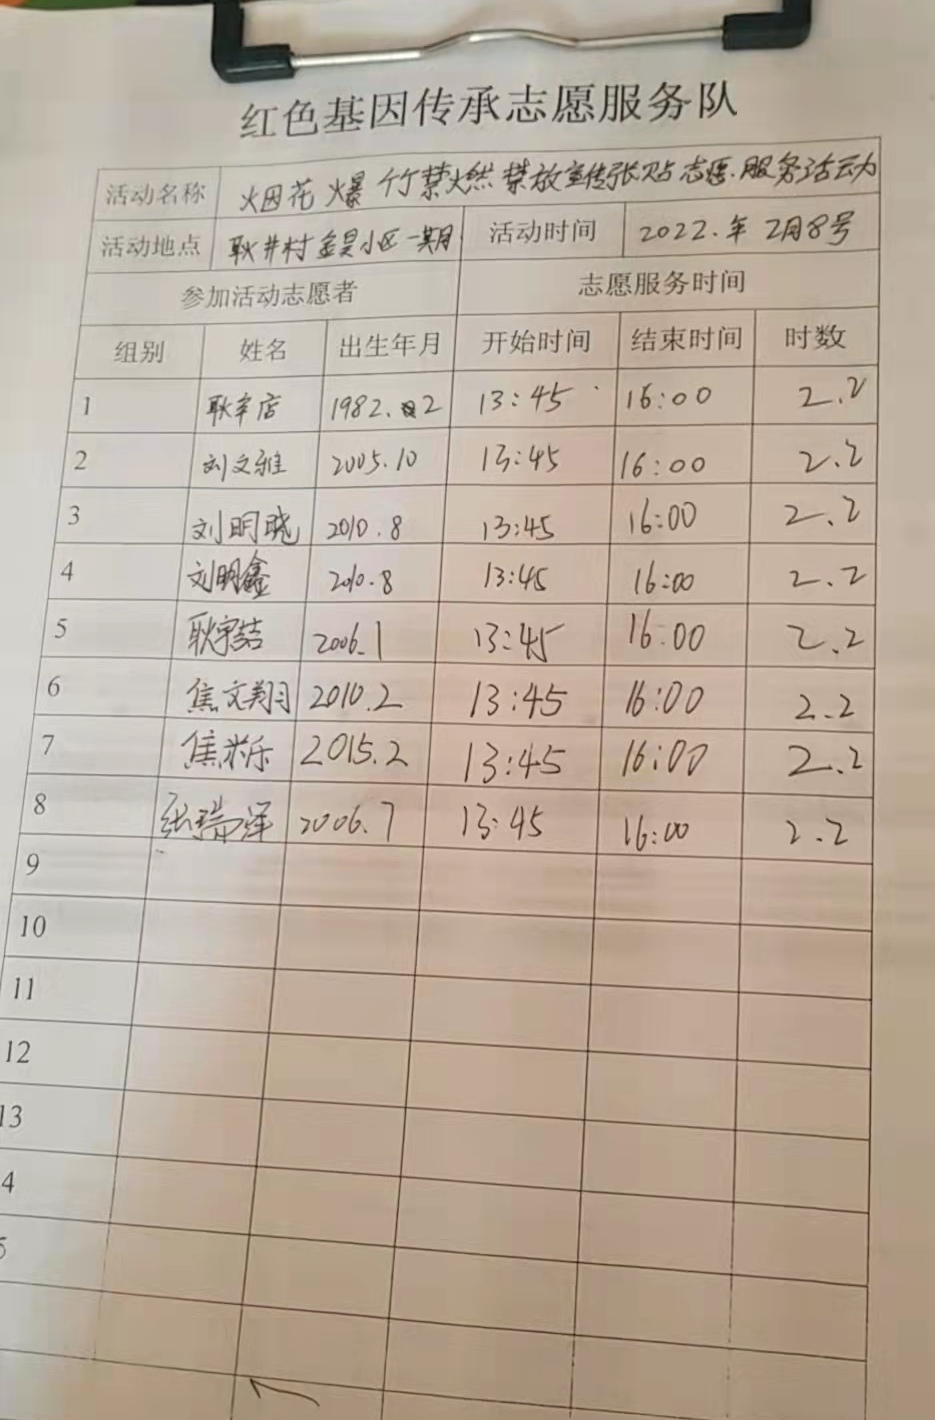 红色基因传承志愿服务队
活动名称 烟花爆竹禁燃禁放宣传张贴志愿服务活动
活动地点 耿井村金昊小区一期 活动时间 2022.年 2月8号
参加活动志愿者 志愿服务时间
组别 姓名 出生年月 开始时间 结束时间 时数
1 耿辛店 1982.2 13:45 16:00 2.2
2 刘文雅 2005.10 13:45 16:00 2.2
3 刘明晓 2010.8 13:45 16:00 2.2
4 刘明鑫 2010.8 13:45 16:00 2.2
5 耿宇喆 2006.1 13:45 16:00 2.2
6 焦文翔 2010.2 13:45 16:00 2.2
7 焦米乐 2015.2 13:45 16:00 2.2
8 张瑞泽 2006.7 13:45 16:00 2.2
9
10
11
12
13
4
5